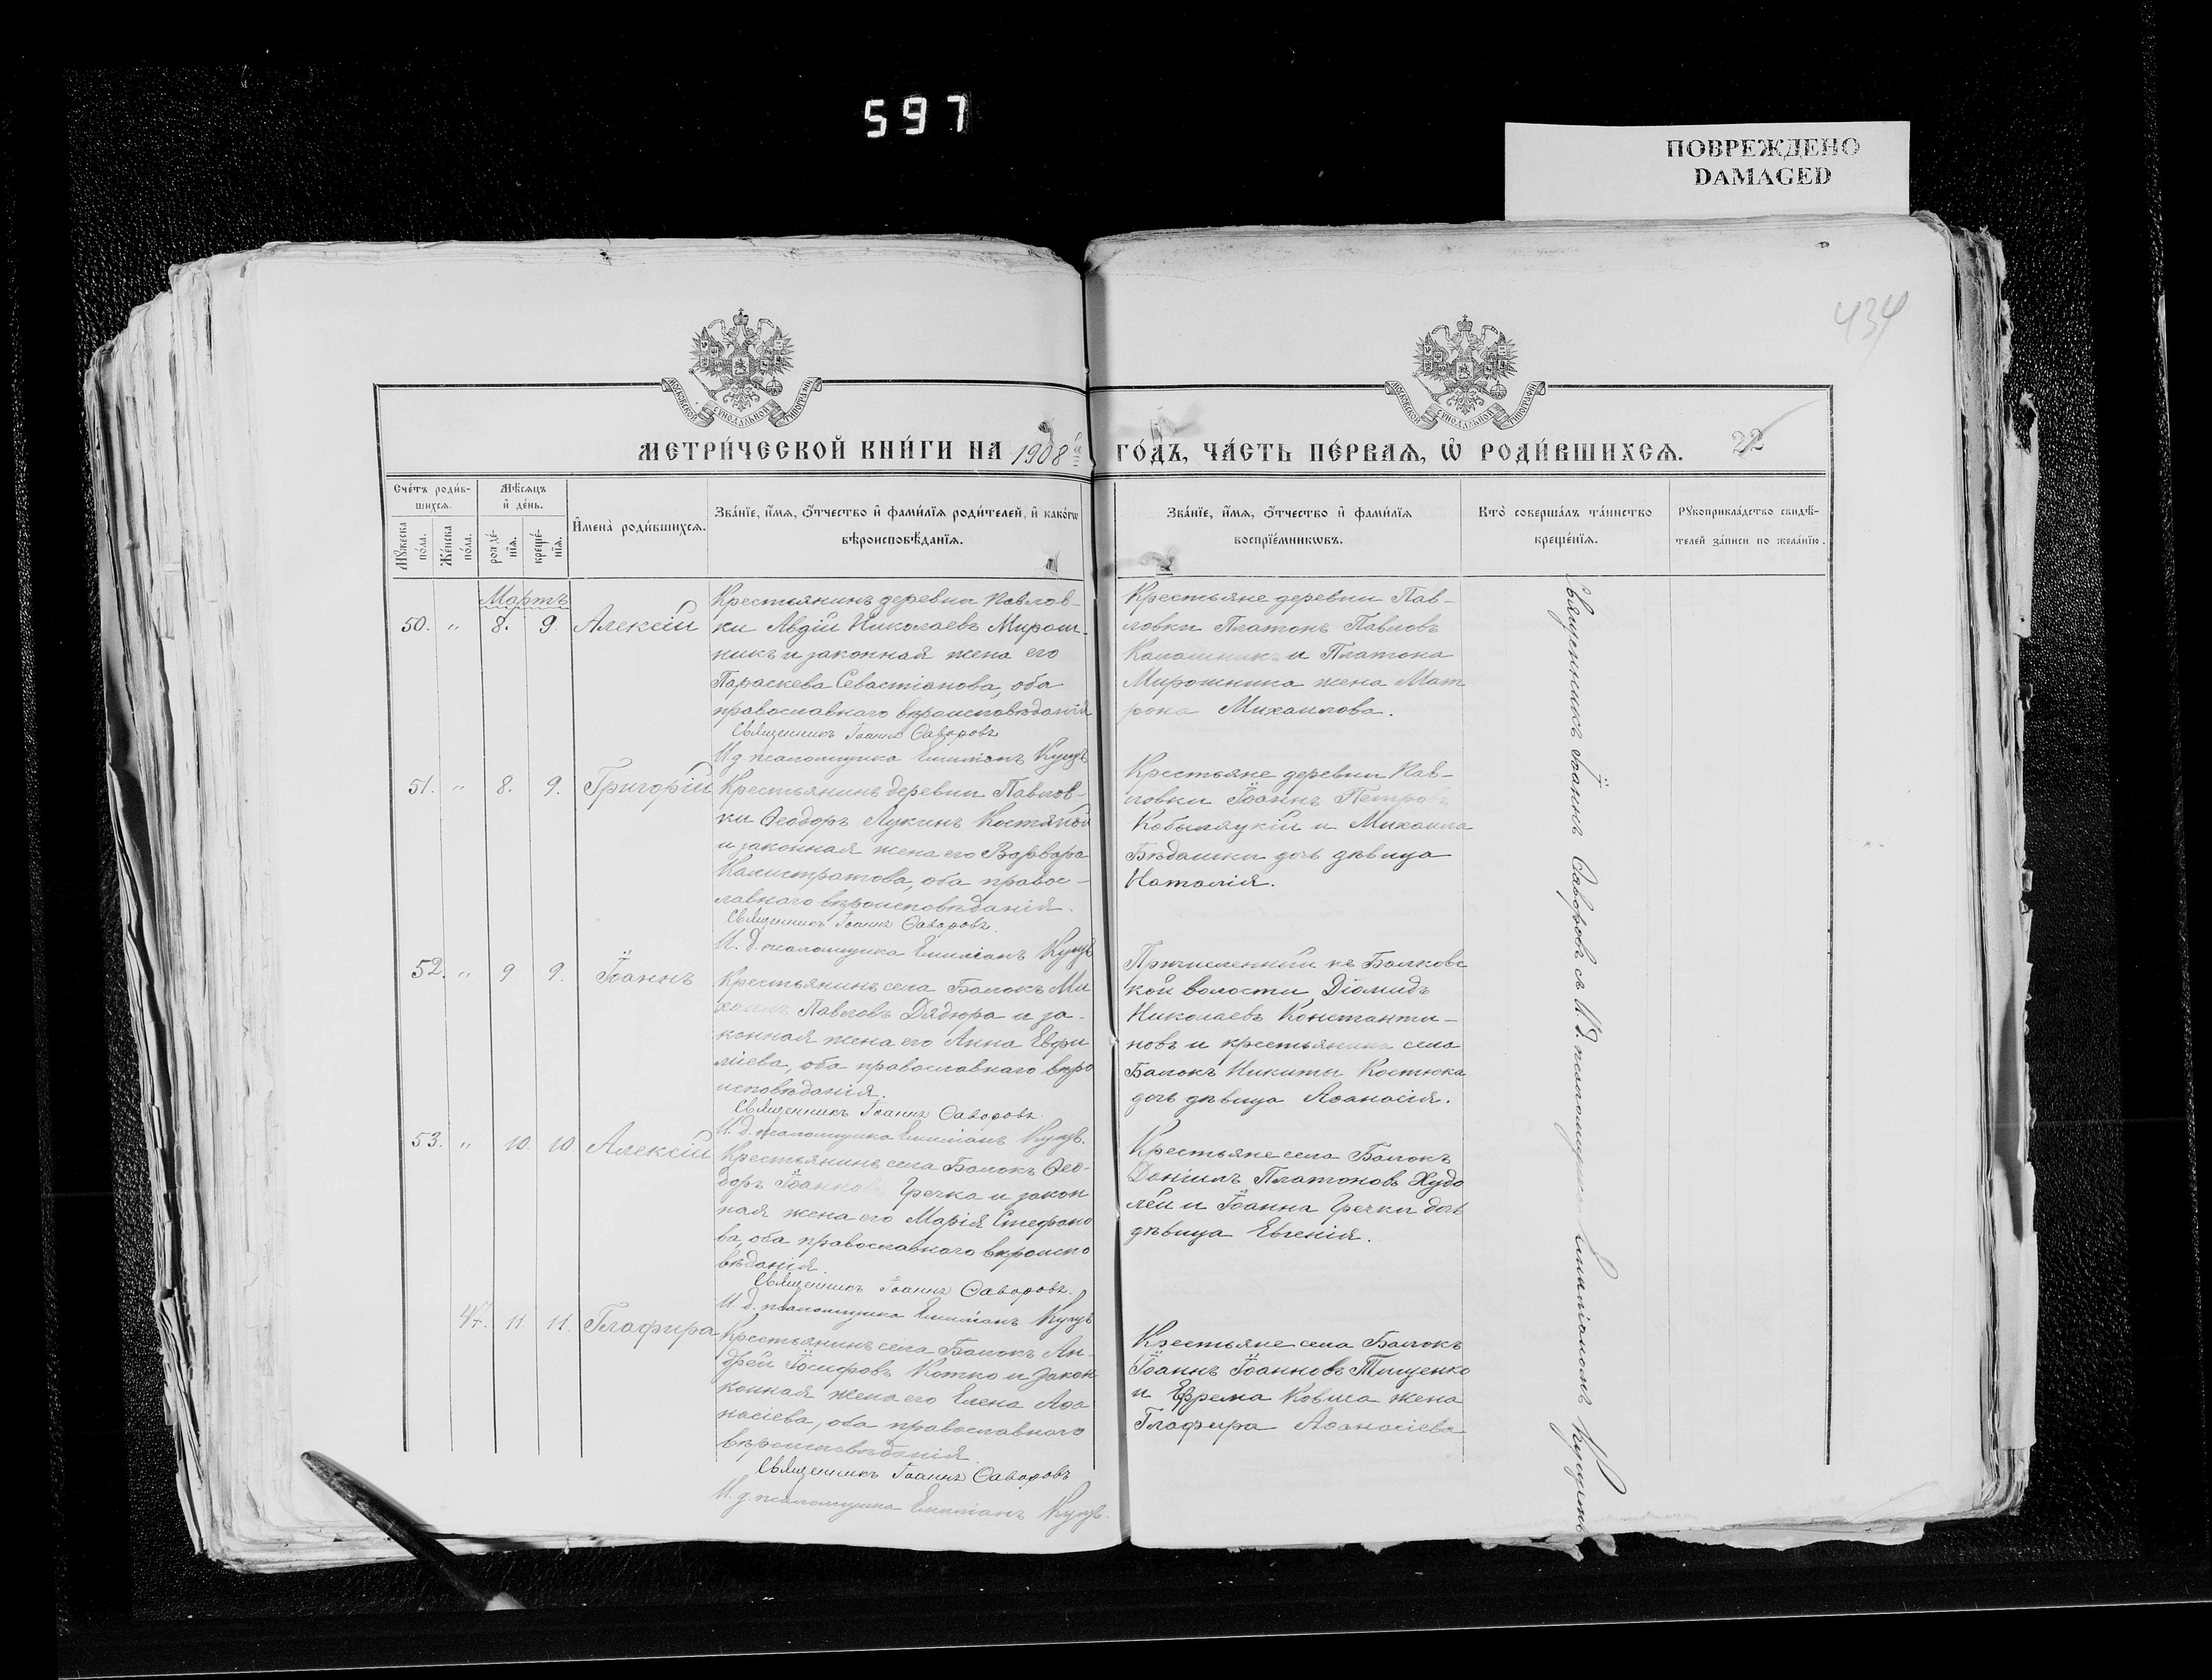 597
ПОВРЕЖДЕНО
DAMAGED
434
МОСКОВСКОЙ СУНОДАЛЬНОЙ ТИПОГРАФІИ
МОСКОВСКОЙ СУНОДАЛЬНОЙ ТИПОГРАФІИ
МЕТРИ́ЧЕСКОЙ КНИ́ГИ НА 1908 ГО́ДЪ, ЧА́СТЬ ПЕ́РВАѦ, Ѡ҆ РОДИ́ВШИХСѦ. 22
Сче́тъ роди́в-
шихсѧ.
Мꙋ́жеска по́ла.
Же́нска по́ла.
Мѣ́сѧцъ
и҆ де́нь.
рожде́-
нїѧ.
креще́-
нїѧ.
И҆мена̀ роди́вшихсѧ.
Зва́нїе, и҆́мѧ, ѻ҆́тчество и҆ фами́лїѧ роди́телей, и҆ како́гѡ
вѣроисповѣ́данїѧ.
Зва́нїе, и҆́мѧ, ѻ҆́тчество и҆ фами́лїѧ
воспрїе́мникѡвъ.
Кто̀ соверша́лъ та́инство
креще́нїѧ.
Рꙋкоприкла́дство свидѣ́-
телей за́писи по жела́нїю.
Мартъ
50. " 8. 9. Алексій
Крестьянинъ деревни Павлов-
ки Авдій Николаевъ Мирош-
никъ и законная жена его
Параскева Севастіанова, оба
православнаго вѣроисповѣданія
Священникъ Іоаннъ Ѳаворовъ
И. д. псаломщика Емиліанъ
Крестьяне деревни Пав-
ловки Платонъ Павловъ
Калашникъ и Платона
Мирошника жена Мат
рона Михаилова.
51. " 8. 9. Григорій
Крестьянинъ деревни Павлов-
ки Ѳеодоръ Лукинъ Костяной
и законная жена его Варвара
Калистратова, оба правос-
лавнаго вѣроисповѣданія.
Священникъ Іоаннъ Ѳаворовъ.
И. д. псаломщика Емиліанъ
Крестьяне деревни Пав-
ловки Іоаннъ Петровъ
Кобыляцкій и Михаила
Бѣдашки дочь дѣвица
Наталія.
52. " 9 9. Іоаннъ
Крестьянинъ села Балокъ Ми
хаилъ Павловъ Дядюра и за-
конная жена его Анна Евфи
міева, оба православнаго вѣро
исповѣданія.
Священникъ Іоаннъ Ѳаворовъ.
И. д. псаломщика Емиліанъ
Причисленный къ Балковс
кой волости Діомидъ
Николаевъ Константи-
новъ и крестьянина села
Балокъ Никиты Костюка
дочь дѣвица Аѳанасія.
53. " 10. 10. Алексій
Крестьянинъ села Балокъ Ѳео-
доръ Іоанновъ Гречка и закон
ная жена его Марія Стефано
ва, оба православнаго вѣроиспо
вѣданія.
Священникъ Іоаннъ Ѳаворовъ.
И. д. псаломщика Емиліанъ
Крестьяне села Балокъ
Даніилъ Платоновъ Худо
лей и Іоанна Гречки дочь
дѣвица Евгенія.
47. 11. 11. Глафира
Крестьянинъ села Балокъ Ан-
дрей Іосифовъ Котко и закон
конная жена его Елена Аѳа
насіева, оба православнаго
вѣроисповѣданія.
Священникъ Іоаннъ Ѳаворовъ
И. д. псаломщика Емиліанъ
Крестьяне села Балокъ
Іоаннъ Іоанновъ Тищенко
и Ефрема Ковша жена
Глафира Аѳанасіева
Священникъ Іоаннъ Ѳаворовъ съ И. д. псаломщика Емиліаномъ